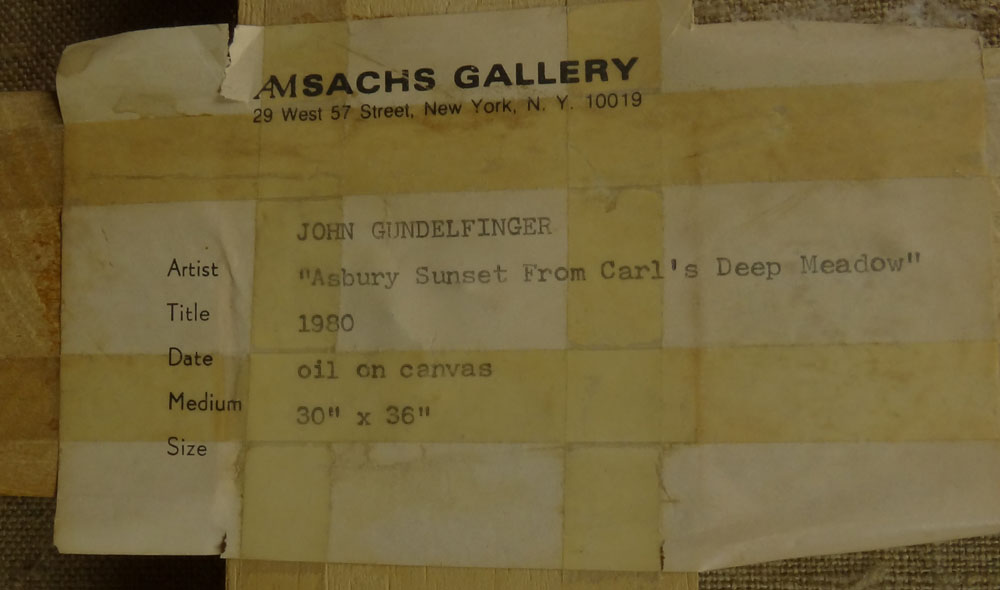 AM SACHS GALLERY
29 West 57 Street, New York, N. Y. 10019
JOHN GUNDELFINGER
Artist "Asbury Sunset From Carl's Deep Meadow"
Title 1980
Date oil on canvas
Medium 30" x 36"
Size